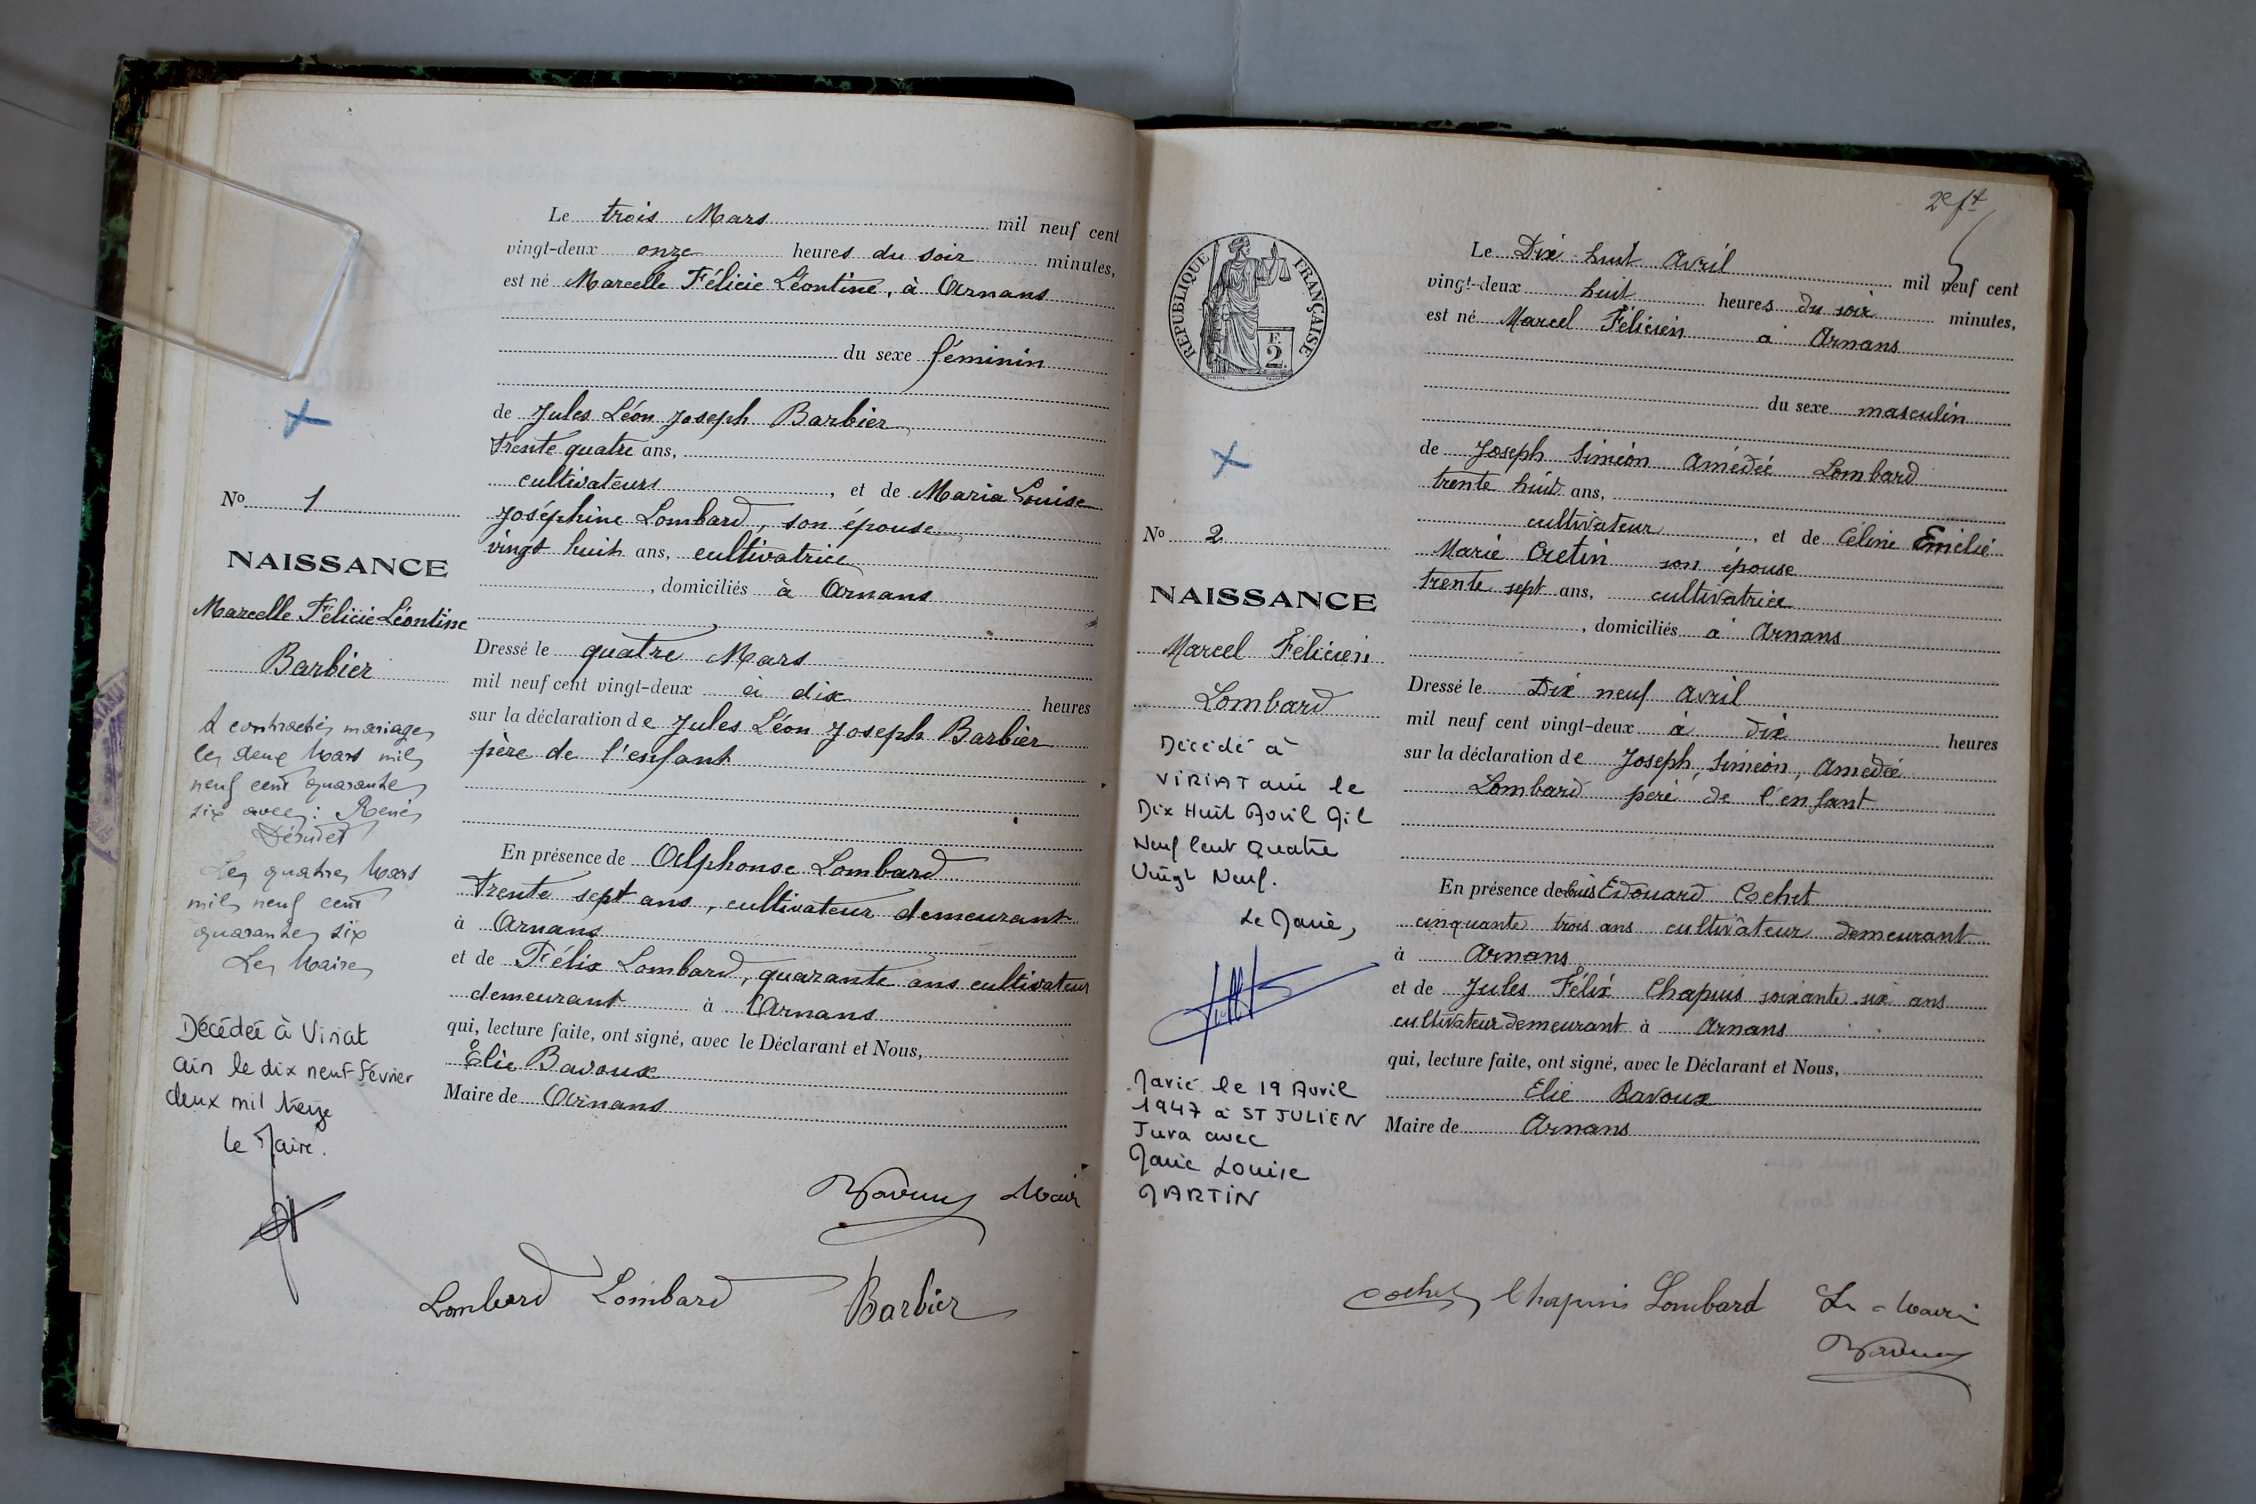 Le trois Mars mil neuf cent
vingt-deux onze heures du soir minutes,
est né Marcelle Félicie Léontine, à Arnans
du sexe féminin
de Jules Léon Joseph Barbier
trente quatre ans,
cultivateurs, et de Maria Louise
Joséphine Lombard, son épouse
vingt huit ans, cultivatrice
, domiciliés à Arnans
Dressé le quatre Mars
mil neuf cent vingt-deux à dix heures
sur la déclaration de Jules Léon Joseph Barbier
père de l'enfant
En présence de Alphonse Lombard
trente sept ans, cultivateur demeurant
à Arnans
et de Félix Lombard, quarante ans cultivateur
demeurant à Arnans
qui, lecture faite, ont signé, avec le Déclarant et Nous,
Elie Bavoux
Maire de Arnans
Lombard Lombard Barbier
No 1
NAISSANCE
Marcelle Félicie Léontine
Barbier
A contracté mariage
le deux Mars mil
neuf cent quarante
six avec : René
Le quatre Mars
mil neuf cent
quarante six
Le Maire
Décédée à Viriat
ain le dix neuf février
deux mil treize
le Maire.
2e ft
RÉPUBLIQUE FRANÇAISE
F.
2.
Le Dix huit Avril mil neuf cent
vingt-deux huit heures du soir minutes,
est né Marcel Félicien à Arnans
du sexe masculin
de Joseph Siméon Amédée Lombard
trente huit ans,
cultivateur, et de Céline Emélie
Marie Cretin son épouse
trente sept ans, cultivatrice
, domiciliés à Arnans
Dressé le Dix neuf avril
mil neuf cent vingt-deux à dix heures
sur la déclaration de Joseph, Siméon, Amédée
Lombard père de l'enfant
En présence de Edouard Cochet
cinquante trois ans cultivateur demeurant
à Arnans
et de Jules Félix Chapuis soixante six ans
cultivateur demeurant à Arnans
qui, lecture faite, ont signé, avec le Déclarant et Nous,
Elie Bavoux
Maire de Arnans
Cochet Chapuis Lombard Le Maire
No 2
NAISSANCE
Marcel Félicien
Lombard
Décédé à
VIRIAT ain le
Dix Huit Avril Mil
Neuf Cent Quatre
Vingt Neuf.
Le Maire,
Marié le 19 Avril
1947 à ST JULIEN
Jura avec
Marie Louise
MARTIN